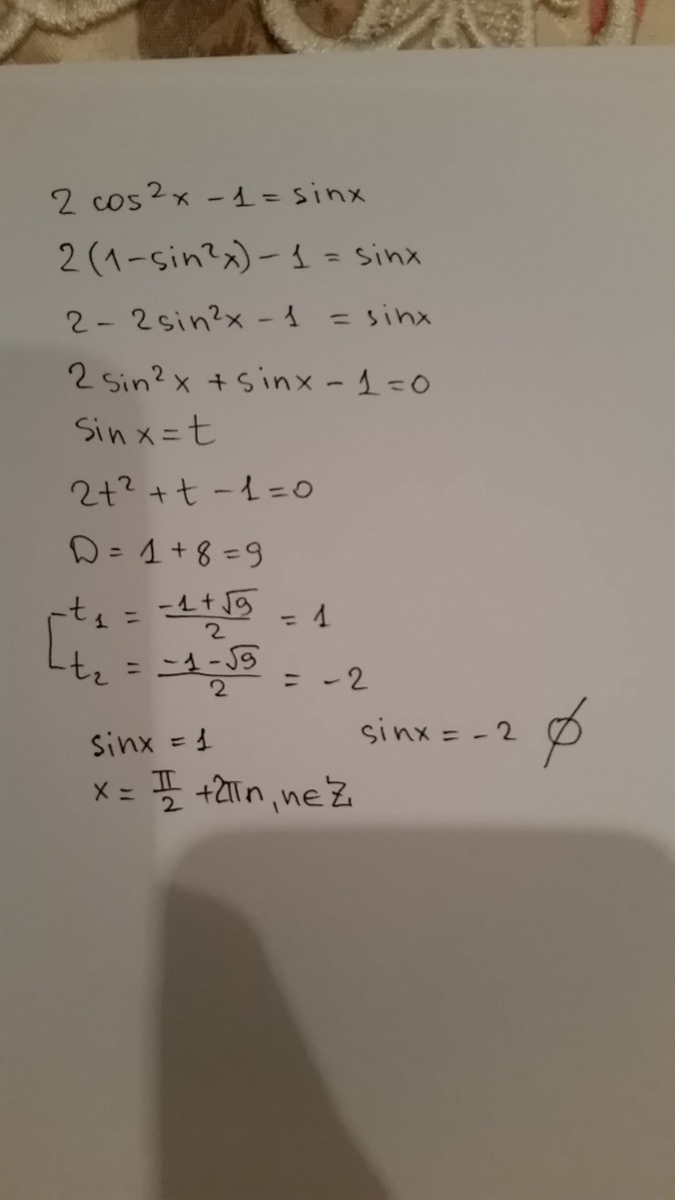 2 cos²x - 1 = sinx
2(1-sin²x) - 1 = sinx
2 - 2sin²x - 1 = sinx
2 sin²x + sinx - 1 = 0
sin x = t
2t² + t - 1 = 0
D = 1 + 8 = 9
t₁ = (-1+√9)/2 = 1
t₂ = (-1-√9)/2 = -2
sinx = 1 sinx = -2 ∅
x = π/2 + 2πn, n∈Z